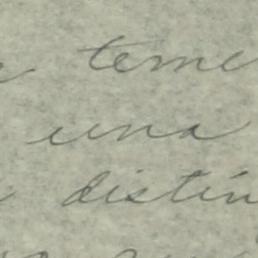 teme
una
distin